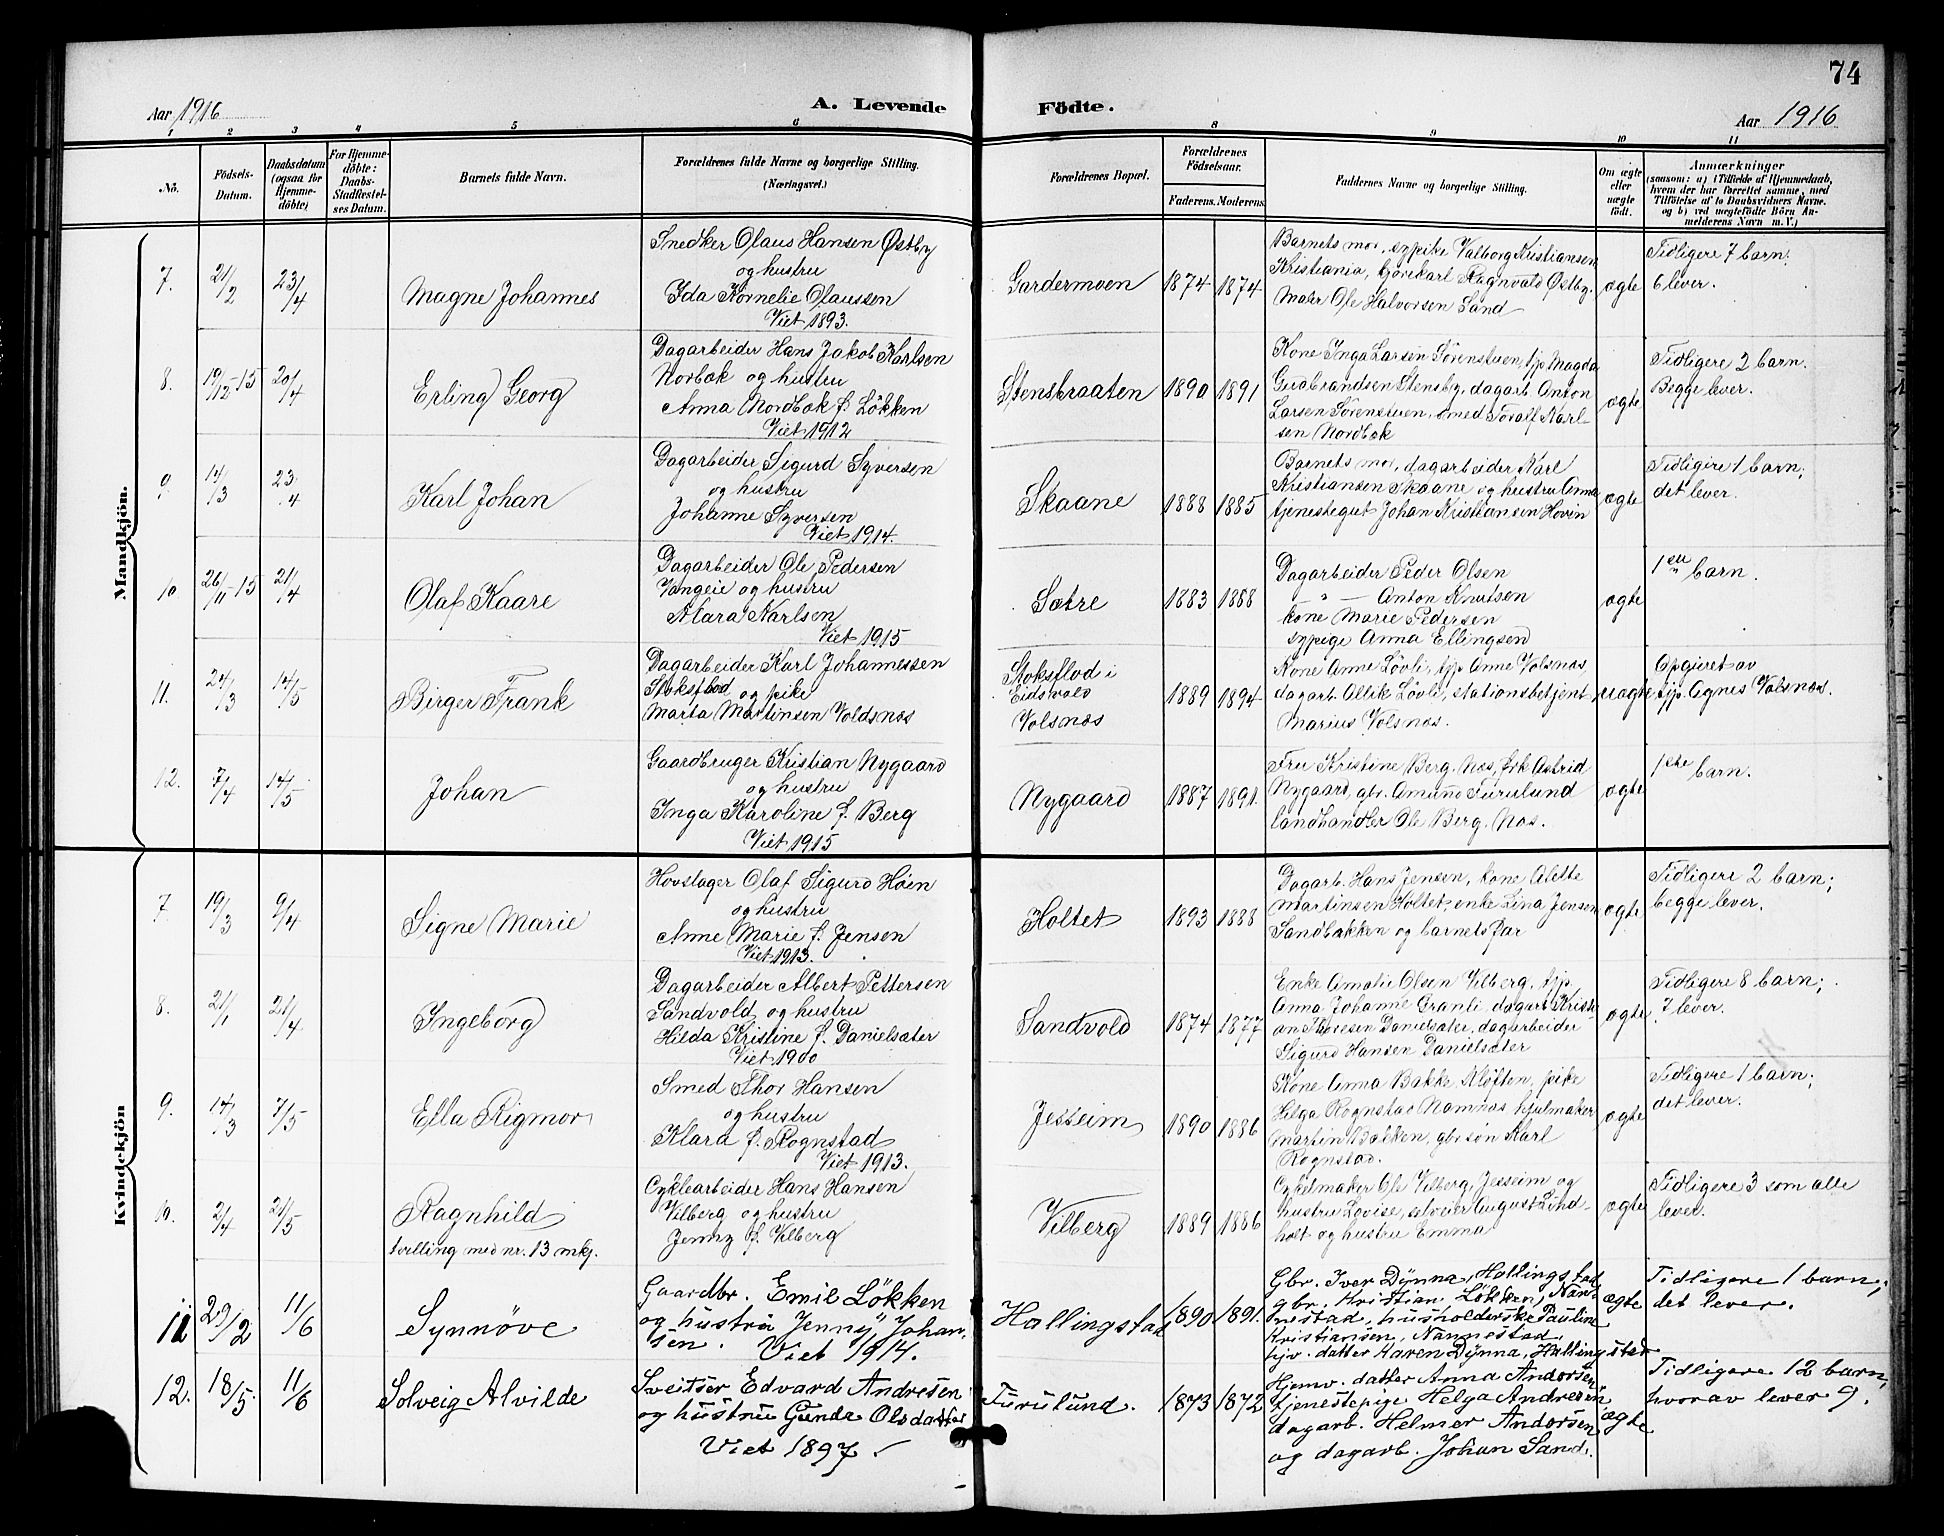 74
Aar 1916
A. Levende Födte.
Aar 1916
1 2 3 4 5 6 8 9 10 11
No.
Födsels-Datum.
Daabsdatum (ogsaa for Hjemme-döbte)
For Hjemme-döbte: Daabs-Stadfæstel-ses Datum.
Barnets fulde Navn.
Forældrenes fulde Navne og borgerlige Stilling.
(Næringsvei.)
Forældrenes Bopæl.
Forældrenes Födselsaar.
Faderens. Moderens.
Faddernes Navne og borgerlige Stilling.
Om ægte eller uægte födt.
Anmærkninger
(saasom: a) i Tilfælde af Hjemmedaab, hvem der har forrettet samme, med Tilföielse af to Daabsvidners Navne. og b) ved uægtefödte Börn An-melderens Navn m. V.)
Mandkjön.
7. 21/2 23/4 Magne Johannes
Snedker Olaus Hansen Østby
og hustru
Ida Kornelie Olaussen
Viet 1893.
Gardermoen 1874 1874
Barnets mor, sypike Valborg Kristiansen
Kristiania, kjørekarl Ragnvald Østby.
Maler Ole Halvorsen Sand
ægte
Tidligere 7 barn.
6 lever.
8. 19/12-15 20/4 Erling Georg
Dagarbeider Hans Jakob Karlsen
Norbæk og hustru
Anna Nordbæk f. Løkken
Viet 1912
Stensbraaten 1890 1891
Kone Inga Larsen Sørenstuen, tjp Magda
Gudbrandsen Stensby, dagarb Anton
Larsen Sørenstuen, smed Toralf Karl-
sen Nordbæk
ægte
Tidligere 2 barn.
Begge lever.
9. 14/3 23/4 Karl Johan
Dagarbeider Sigurd Syversen
og hustru
Johanne Syversen
Viet 1914.
Skaane 1888 1885
Barnets mor, dagarbeider Karl
Kristiansen Skaane og hustru Anna
tjenestegut Johan Kristiansen Hovin
ægte
Tidligere 1 barn;
det lever.
10 26/11-15 21/4 Olaf Kaare
Dagarbeider Ole Pedersen
Vangeie og hustru
Klara Karlsen
Viet 1915
Sætre 1883 1888
Dagarbeider Peder Olsen
" — Anton Knutsen
kone Marie Pedersen
sypige Anna Ellingsen
ægte
1ste barn.
11. 24/3 14/5 Birger Frank
Dagarbeider Karl Johannessen
Stoksflod og pike
Marta Martinsen Voldsnæs
Stoksflod i
Eidsvold
Volsnæs
1889 1894
Kone Anne Løvli, tjp Anne Volsnæs,
dagarb. Ollik Løvli, stationsbetjent
Marius Volsnæs.
uægte
Opgivet av
tjp. Agnes Volsnæs.
12. 7/4 14/5 Johan
Gaardbruger Kristian Nygaard
og hustru
Inga Karoline f. Berg
Viet 1915
Nygaard 1887 1891.
Fru Kristine Berg. Næs, frk Astrid
Nygaard, gbr. Amund Furulund
landhandler Ole Berg. Næs.
ægte
1ste barn.
Kvindekjön
7. 19/3 9/4 Signe Marie
Hovslager Olaf Sigurd Høen
og hustru
Anne Marie f. Jensen
Viet 1913.
Holtet 1893 1888
Dagarb. Hans Jensen, kone Alette
Martinsen Holtet, enke Lina Jensen
Sandbakken og barnets far
ægte
Tidligere 2 barn;
begge lever.
8. 21/1 21/4 Ingeborg
Dagarbeider Albert Pettersen
Sandvold og hustru
Hilda Kristine f. Danielsæter
Viet 1900
Sandvold 1874 1877
Enke Amalie Olsen Vilberg, tjp
Anna Johanne Granli, dagarb Kristi-
an Thoresen Danielsæter, dagarbeider
Sigurd Hansen Danielsæter
ægte
Tidligere 8 barn;
7 lever.
9. 14/3 7/5 Ella Rigmor
Smed Thor Hansen
og hustru
Klara f. Rognstad
Viet 1913.
Jesseim 1890 1886
Kone Anna Bakke Kløften, pike
Helga Rognstad Namnæs, hjulmaker
Martin Bakken, gbr søn Karl
Rognstad.
ægte
Tidligere 1 barn;
det lever.
10. 2/4 21/5 Ragnhild
tvilling med nr. 13 mkj.
Cyklearbeider Hans Hansen
Vilberg og hustru
Jenny f. Vilberg
Vilberg 1889 1886
Cykelmaker Ole Vilberg, Jesseim og
hustru Lovise, selveier August Lind-
holt og hustru Emma
ægte
Tidligere 3 som alle
lever.
11 29/2 11/6 Synnøve
Gaardbr. Emil Løkken
og hustru Jenny Johan-
sen. Viet 1914.
Hallingstad 1890 1891.
Gbr. Iver Dynna, Hallingstad
gbr. Kristian Løkken, Nan-
nestad, husholderske Pauline
Kristiansen, Nannestad.
hjv. datter Karen Dynna, Hallingstad
ægte
Tidligere 1 barn;
det lever.
12. 18/5. 11/6 Solveig Alvilde
Sveitser Edvard Andresen
og hustru Gunda Olsdatter
Viet 1897.
Furulund. 1873 1872
Hjemv. datter Anna Andorsen
tjenestepige Helga Andresen
dagarb. Helmer Andorsen
og dagarb. Johan Sand.
ægte
Tidligere 12 barn,
hvorav lever 9.